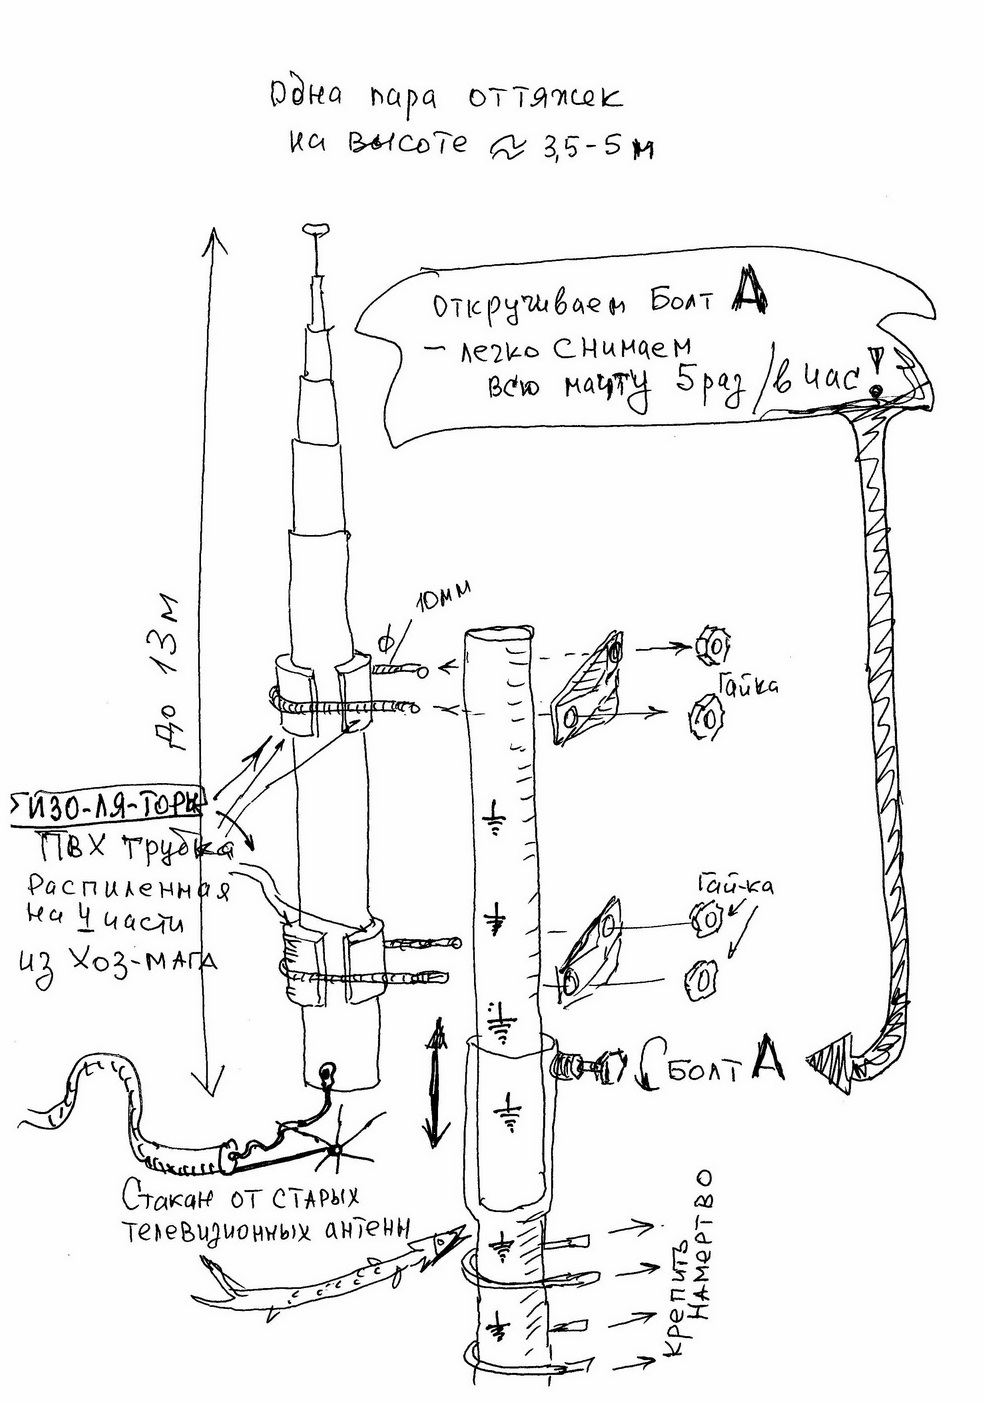 Одна пара оттяжек
на высоте ≈ 3,5-5 м
Откручиваем Болт А
- легко снимаем
всю мачту 5 раз/в час!
до 13 м
ф 10мм
Гайка
ИЗО-ЛЯ-ТОРЫ
ПВХ трубка
Распиленная
на 4 части
из Хоз-МАГА
Гай-ка
БОЛТ А
Стакан от старых
телевизионных антенн
крепить
намертво